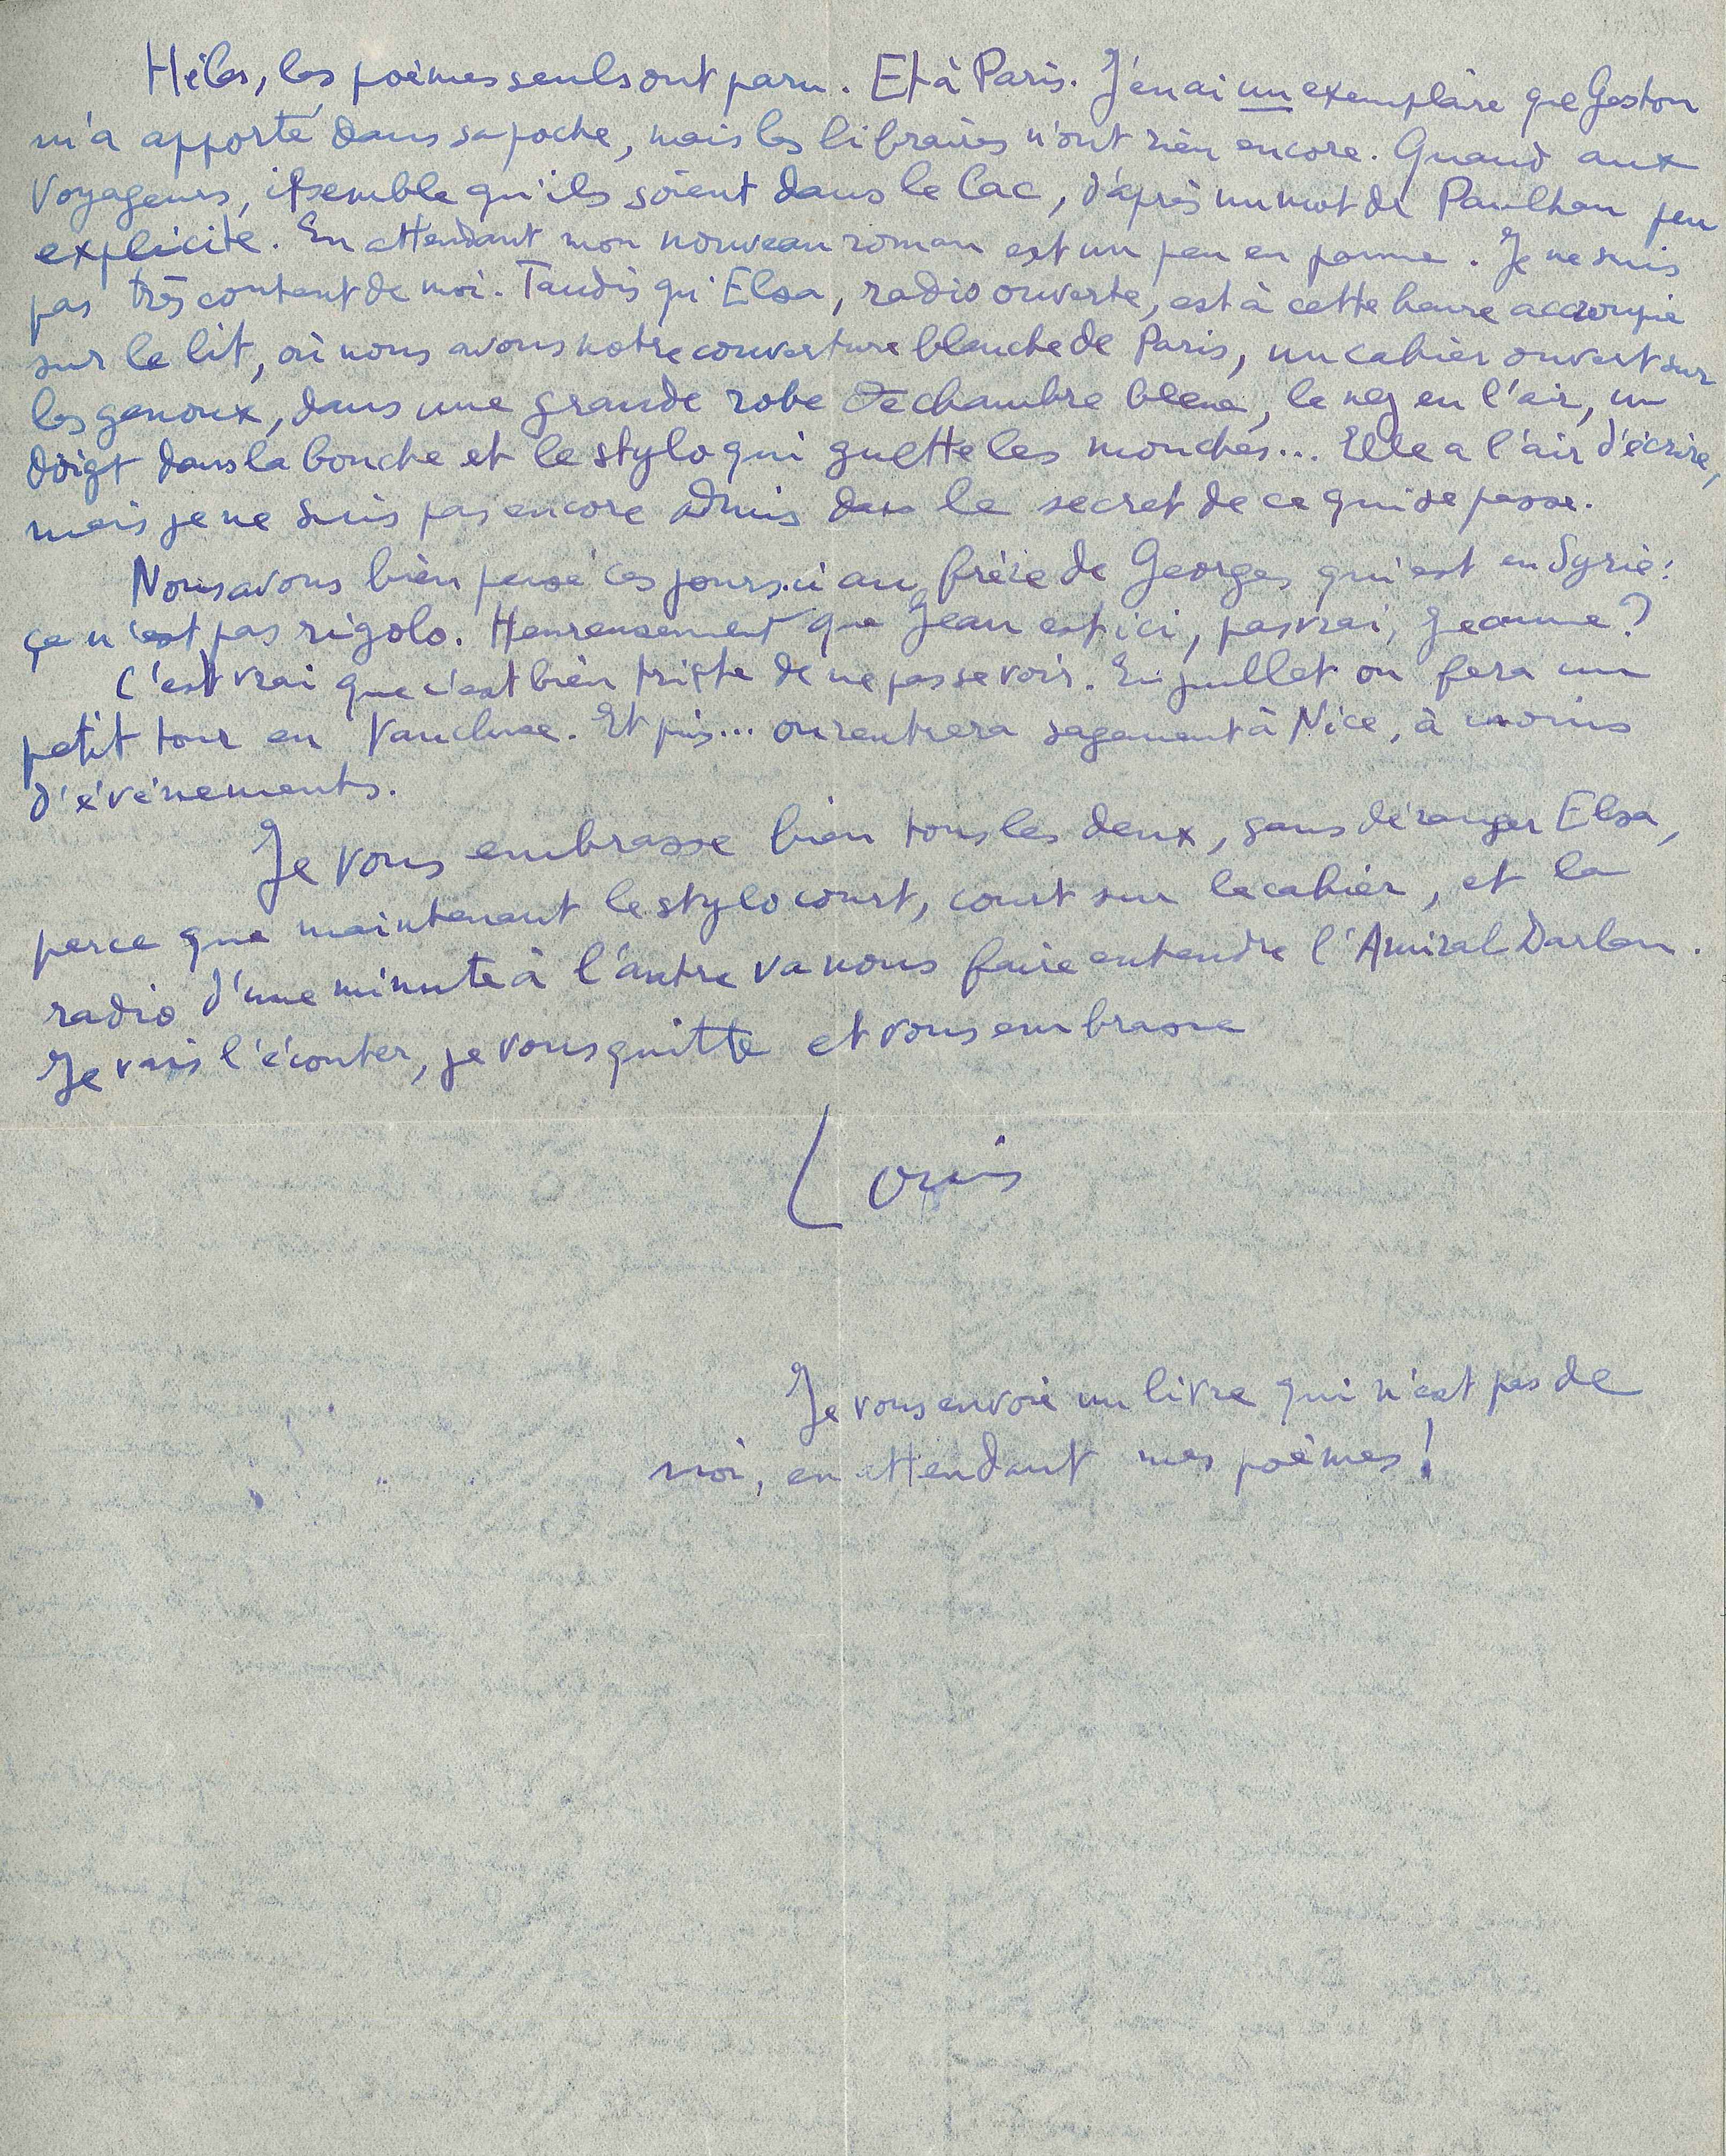 Hélas, les poèmes seuls ont paru. Et à Paris. J'en ai un exemplaire que Gaston
m'a apporté dans sa poche, mais les libraires n'ont rien encore. Quand aux
Voyageurs, il semble qu'ils soient dans le lac, d'après un mot de Paulhan peu
explicite. En attendant mon nouveau roman est un peu en panne. Je ne suis
pas très content de moi. Tandis qu'Elsa, radio ouverte, est à cette heure accroupie
sur le lit, où nous avons notre couverture blanche de Paris, un cahier ouvert sur
les genoux, dans une grande robe de chambre bleue, le nez en l'air, un
doigt dans la bouche et le stylo qui guette les mouches... Elle a l'air d'écrire,
mais je ne suis pas encore admis dans le secret de ce qui se passe.
Nous avons bien pensé ces jours-ci au frère de Georges qui est en Syrie:
ça n'est pas rigolo. Heureusement que Jean est ici, pas vrai, Jeanne?
C'est vrai que c'est bien triste de ne pas se voir. En juillet on fera un
petit tour en Vaucluse. Et puis... on rentrera sagement à Nice, à moins
d'événements.
Je vous embrasse bien tous les deux, sans déranger Elsa,
parce que maintenant le stylo court, court sur le cahier, et la
radio d'une minute à l'autre va nous faire entendre l'Amiral Darlan.
Je vais l'écouter, je vous quitte et vous embrasse
Louis
Je vous envoie un livre qui n'est pas de
moi, en attendant mes poèmes!